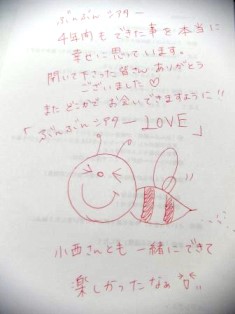 ぶんぶんシアター
4年間もできた事を本当に
幸せに思っています。
聞いて下さった皆さんありがとう
ございました♡
またどこかでお会いできますように!!
「ぶんぶんシアターLOVE」
小西さんとも一緒にできて
楽しかったなぁ